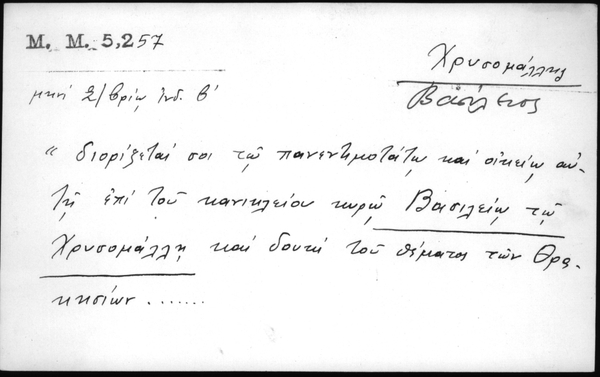 M. M. 5,257
Χρυσομάλλης
Βασίλειος
μηνὶ 2/βρίῳ ἰνδ. β'
“ διορίζεταί σοι τῷ πανεντιμοτάτῳ καὶ οἰκείῳ αὐ-
τῇ ἐπὶ τοῦ κανικλείου κυρῷ Βασιλείῳ τῷ
Χρυσομάλλῃ καὶ δουκὶ τοῦ θέματος τῶν Θρᾳ-
κησίων .......